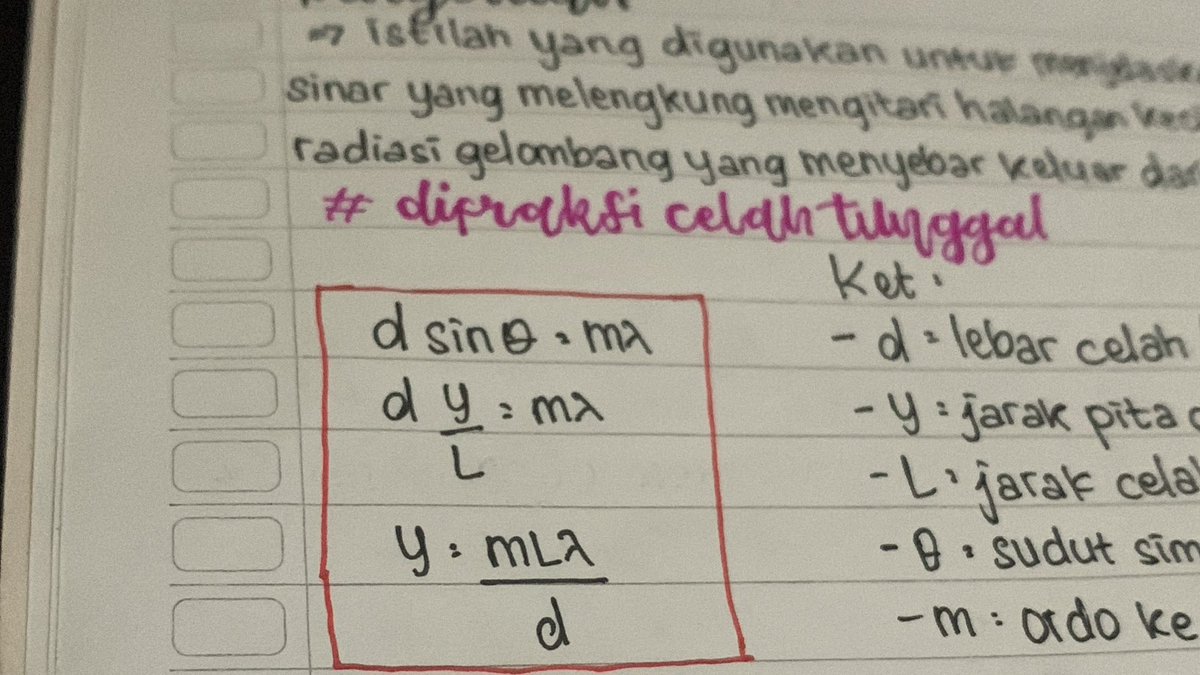 ⇒ istilah yang digunakan untuk
sinar yang melengkung mengitari halangan
radiasi gelombang yang menyebar keluar
# dipraksi celah tunggal
Ket :
d sin θ = mλ
- d = lebar celah
d y/L = mλ
- y = jarak pita
- L = jarak
- θ = sudut
y = mLλ/d
- m = ordo ke